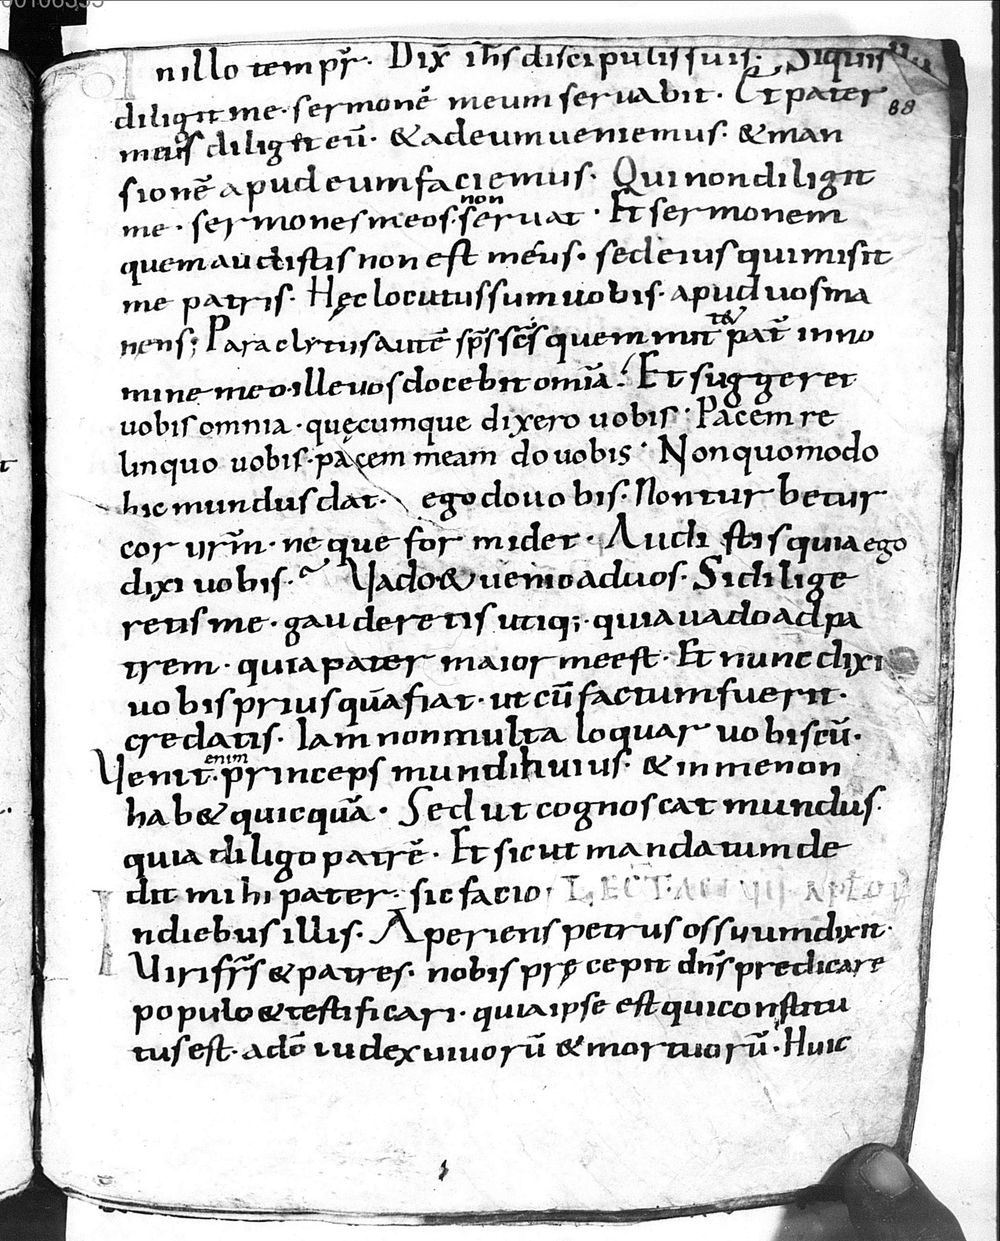 In illo temp̄r. Dix̄ ih̄s discipulis suis. Siquis
diligit me. sermonē meum seruabit. Et pater
88
meus diligit eū. & adeum ueniemus. & man
sionē apud eum faciemus. Qui non diligit
me. sermones meos. non seruat. Et sermonem
quem audistis non est meus. sed eius qui misit
me patris. Hęc locutus sum uobis. apud uos ma
nens; Paraclytus autē sp̄s sc̄s quem mittet pat̄ in no
mine meo. ille uos docebit om̄ia. Et suggeret
uobis omnia. quęcumque dixero uobis. Pacem re
linquo uobis. pacem meam do uobis. Non quomodo
hic mundus dat. ego do uobis. Non turbetur
cor ur̄m. neque formidet. Audistis quia ego
dixi uobis. Vado & uenio ad uos. Si dilige
retis me. gauderetis utiq;. quia uado ad pa
trem. quia pater maior me est. Et nunc dixi
uobis prius quā fiat. ut cū factum fuerit.
credatis. Iam non multa loquar uobiscū.
Venit. enim princeps mundi huius. & in me non
hab& quicquā. Sed ut cognoscat mundus.
quia diligo patrē. Et sicut mandatum de
dit mihi pater. sic facio; LECT. ACTUU APLOR
In diebus illis. Aperiens petrus os suum dixit.
Uiri fr̄s & patres. nobis pręcepit dn̄s predicare
populo & testificari. quia ipse est qui constitu
tus est. a dō iudex uiuorū & mortuorū. Huic